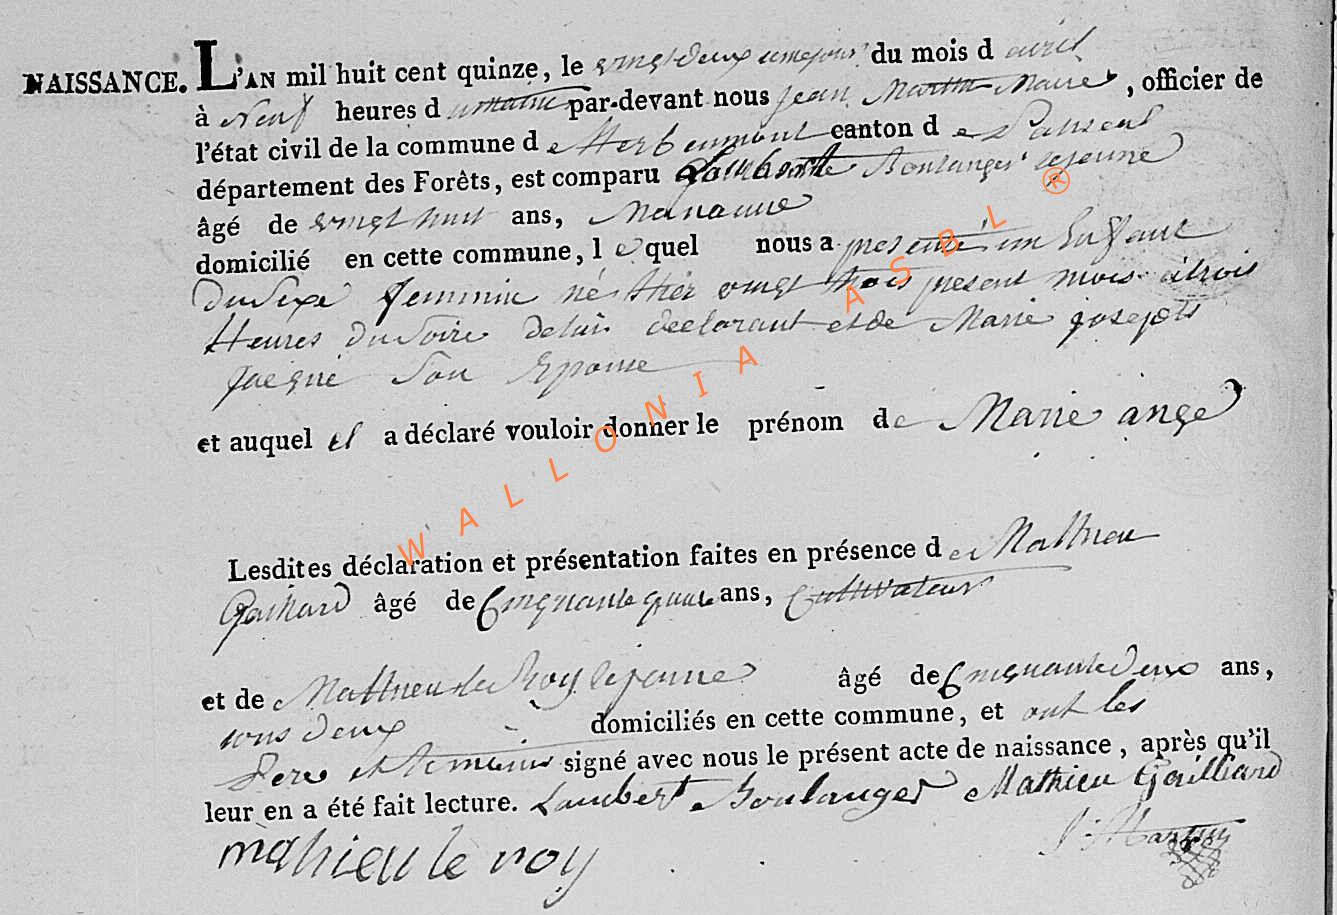 NAISSANCE. L'AN mil huit cent quinze, le vingt deux du mois d avril
à Neuf heures d par-devant nous Jean Martin Maire, officier de
l'état civil de la commune d e Herbeumont canton d e Paliseul
département des Forêts, est comparu Lambert Boulanger lejeune
âgé de vingt huit ans, Manœuvre
domicilié en cette commune, l e quel nous a presenté un Enfant
Du Sexe feminin né hier vingt present mois à trois
Heures Du Soire de lui declarant et de Marie josephs
Jacque Son Epouse
et auquel il a déclaré vouloir donner le prénom de Marie ange
Lesdites déclaration et présentation faites en présence d e Mathieu
Gailiard âgé de Cinquante quatre ans, Cultivateur
et de Mathieu le Roy le jeune âgé de Cinquante Deux ans,
tous deux domiciliés en cette commune, et ont les
Pere et temoins signé avec nous le présent acte de naissance, après qu'il
leur en a été fait lecture. Lambert Boulanger Mathieu Gailliard
mathieu le roy J: Martin
WALLONIA ASBL ®